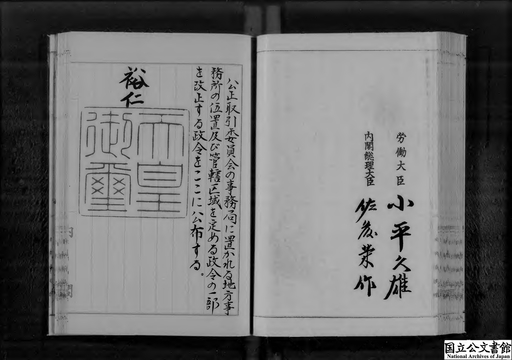 労働大臣
小平久雄
内閣総理大臣
佐藤栄作
公正取引委員会の事務局に置かれる地方事
務所の位置及び管轄区域を定める政令の一部
を改正する政令をここに公布する。
裕仁
天皇
御璽
国立公文書館
National Archives of Japan